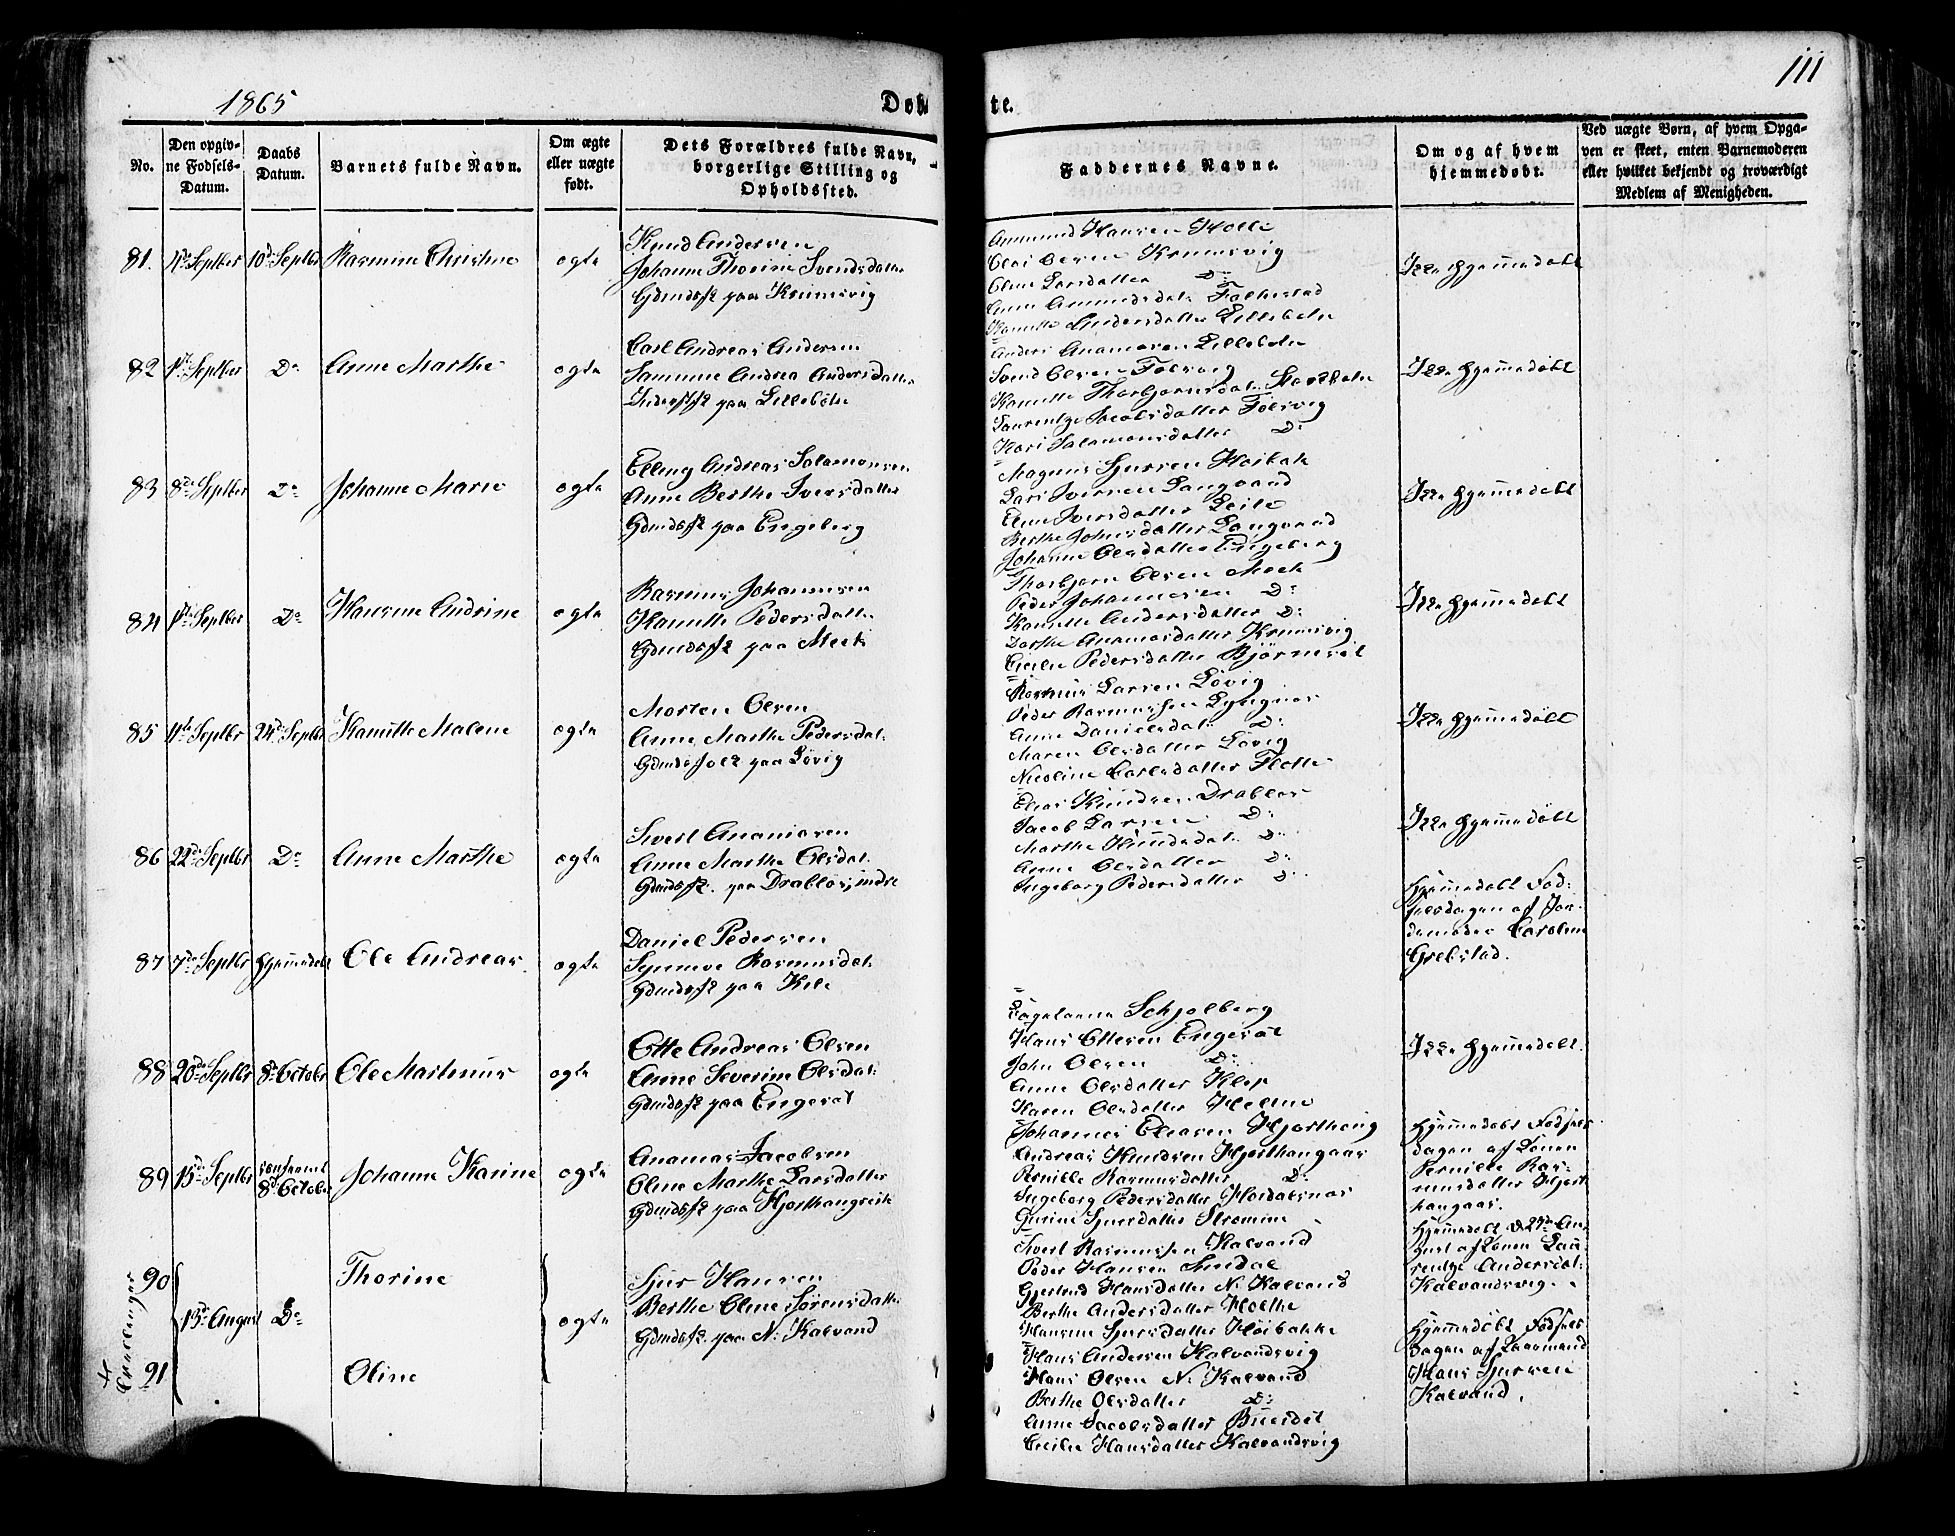 1865
Døbte.
111
No.
Den opgiv-
ne Fødsels-
Datum.
Daabs
Datum.
Barnets fulde Navn.
Om ægte
eller uægte
født.
Dets Forældres fulde Navn,
borgerlige Stilling og
Opholdssted.
Faddernes Navne.
Om og af hvem
hjemmedøbt.
Ved uægte Børn, af hvem Opga-
ven er skeet, enten Barnemoderen
eller hvilket bekjendt og troværdigt
Medlem af Menigheden.
81. Septbr 10de Septbr Rasmine Christine ægte
Knud Andersen
Johanne Thorine Svendsdatter
Gdmdsfk paa Krumsvig
Amund Hansen Holte
Elias Olsen Krumsvig
Oline Larsdatter Do
Anne Amundsdat. Folkestad
Hanette Andersdatter Lillebøle
Ikke hjemmedøbt
82 Septbr Do Anne Marthe ægte
Carl Andreas Andersen
Samine Andrea Andersdatter
Inderstfk paa Lillebøle
Anders Ananiasen Lillebøle
Svend Olsen Følsvig
Hanette Thorbjørnsdat. Storbøle
Laurentze Jacobsdatter Følsvig
Kari Salamonsdatter Do
Ikke hjemmedøbt
83 8de Septbr Do Johanne Marie ægte
Elling Andreas Salamonsen
Anne Berthe Iversdatter
Gdmdsfk paa Engeberg
Magnus Sjursen Høibak
Lars Iversen Langvand
Eline Iversdatter Leite
Berthe Johnsdatter Langvand
Johanne Olsdatter Engeberg
Ikke hjemmedøbt
84 Septbr Do Hansine Andrine ægte
Rasmus Johannesen
Hanette Pedersdatter
Gdmdsfk paa Meek
Thorbjørn Olsen Meek
Peder Johannesen Do
Hanette Andersdatter Do
Dorthe Ananiasdatter Krumsvig
Cicilie Pedersdatter Bjørnesæt
Ikke hjemmedøbt
85 Septbr 24de Septbr Hanette Malene ægte
Morten Olsen
Anne Marthe Pedersdat.
Gdmdsfolk paa Løvig
Rasmus Larsen Løvig
Peder Rasmussen Lyngnæs
Anne Danielsdat. Do
Maren Olsdatter Løvig
Nicoline Carlsdatter Flotte
Ikke hjemmedøbt
86 22de Septbr Do Anne Marthe ægte
Sivert Ananiasen
Anne Marthe Olsdat.
Gdmdsfk. paa Drabløs, indre
Elias Knudsen Drabløs
Jacob Larsen Do
Marthe Knudsdat. Do
Anne Olsdatter Do
Ingeborg Pedersdatter Do
Ikke hjemmedøbt
87 7de Septbr hjemmedøbt Ole Andreas ægte
Daniel Pedersen
Synneve Rasmusdat.
Gdmdsfk paa Kile
hjemmedøbt Fød-
selsdagen af Jor-
demoder Caroline
Grebstad.
88 20de Septbr 8de Octobr Ole Martinus ægte
Otte Andreas Olsen
Anne Severine Olsdat.
Gdmdsfk paa Engesæt
Schjølberg
Hans Ottesen Engesæt
John Olsen Do
Anne Olsdatter Klep
Karen Olsdatter Holme
Ikke hjemmedøbt.
89 15de Septbr confirmt 8de Octobr Johanne Karine ægte
Ananias Jacobsen
Oline Marthe Larsdatter
Gdmdsfk paa Hjorthaugseik
Johannes Eliasen Hjorthaug
Andreas Knudsen Hjorthaugaas
Pernille Rasmusdatter Do
Ingeborg Pedersdatter Hoidalsnæs
Gurine Sjursdatter Strømme
hjemmedøbt Fødsels
dagen af Konen
Pernille Ras-
musdatter Hjort
haugaas.
+
Tvillinger
90
13de August Do Thorine
ægte
Sjur Hansen
Berthe Oline Sørensdatter
Gdmdsfk. paa N. Kalvand
Sivert Rasmussen Kalvand
Peder Hansen Amdal
Gjertrud Hansdatter N. Kalvand
Berthe Andersdatter Holthe
Hansine Sjursdatter Høibakke
hjemmedøbt d 29de Au
gust af Konen Lau-
rentze Andersdat.
Kalvandsvig.
91
Oline
Hans Andersen Kalvandsvig
Hans Olsen N. Kalvand
Berthe Olsdatter Do
Anne Jacobsdatter Buesæt
Cecilie Hansdatter Kalvandsvig
hjemmedøbt Fødsels
Dagen af Gaarmand
Hans Sjursen
Kalvand.